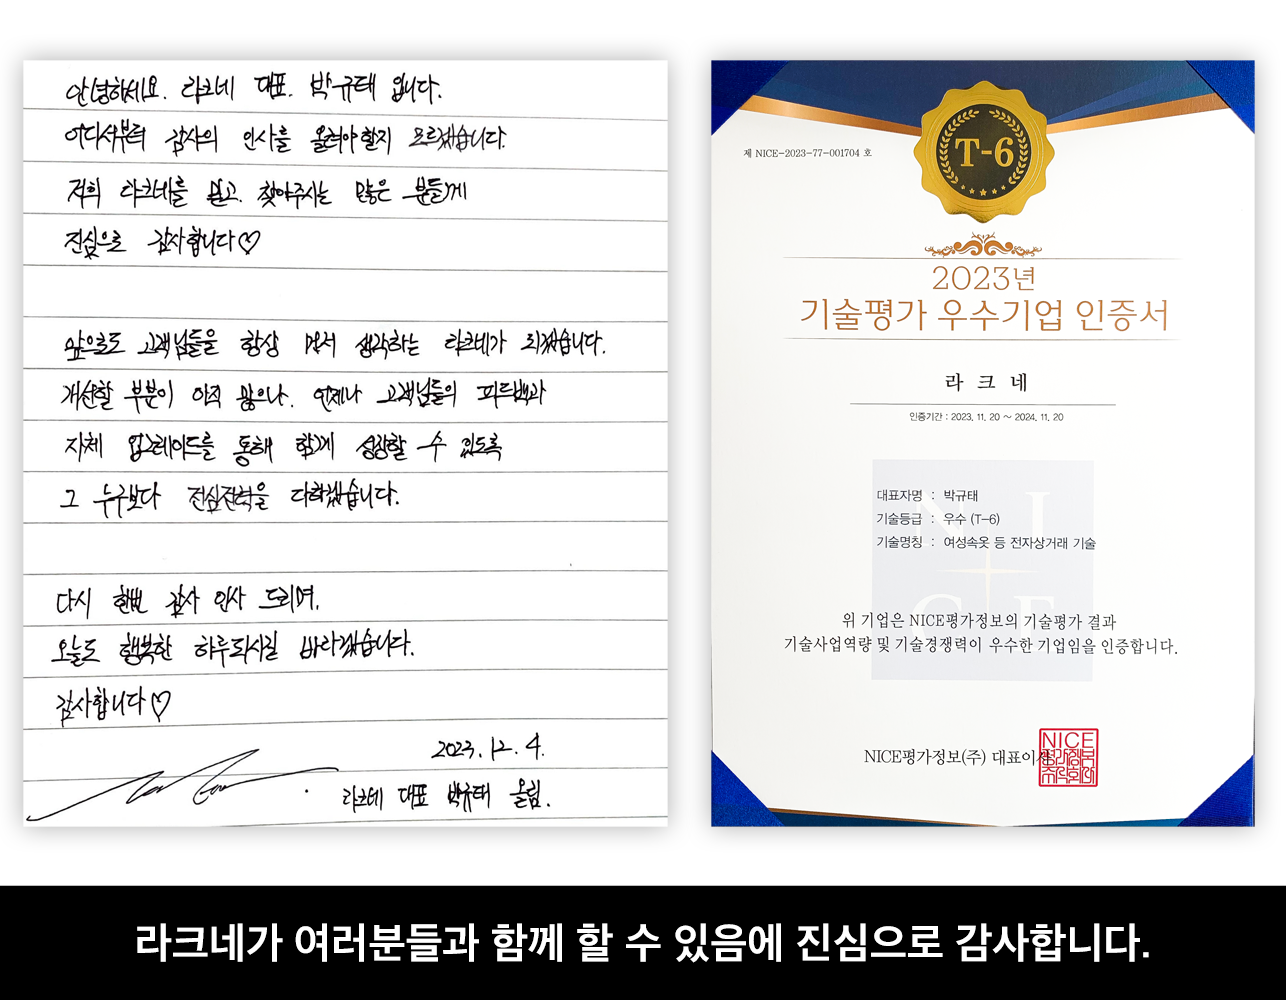 안녕하세요. 라크네 대표. 박규태 입니다.
어디서부터 감사의 인사를 올려야할지 모르겠습니다.
저희 라크네를 믿고. 찾아주시는 많은 분들께
진심으로 감사합니다♡
앞으로도 고객님들을 항상 먼저 생각하는 라크네가 되겠습니다.
개선할 부분이 아직 많으나. 언제나 고객님들의 피드백과
자체 업그레이드를 통해 함께 성장할 수 있도록
그 누구보다 전심전력을 다하겠습니다.
다시 한번 감사 인사 드리며,
오늘도 행복한 하루되시길 바라겠습니다.
감사합니다♡
2023.12.4.
라크네 대표 박규태 올림.
제 NICE-2023-77-001704 호
T-6
2023년
기술평가 우수기업 인증서
라 크 네
인증기간 : 2023. 11. 20 ~ 2024. 11. 20
대표자명 : 박규태
기술등급 : 우수 (T-6)
기술명칭 : 여성속옷 등 전자상거래 기술
NICE
위 기업은 NICE평가정보의 기술평가 결과
기술사업역량 및 기술경쟁력이 우수한 기업임을 인증합니다.
NICE평가정보(주) 대표이사
NICE
라크네가 여러분들과 함께 할 수 있음에 진심으로 감사합니다.